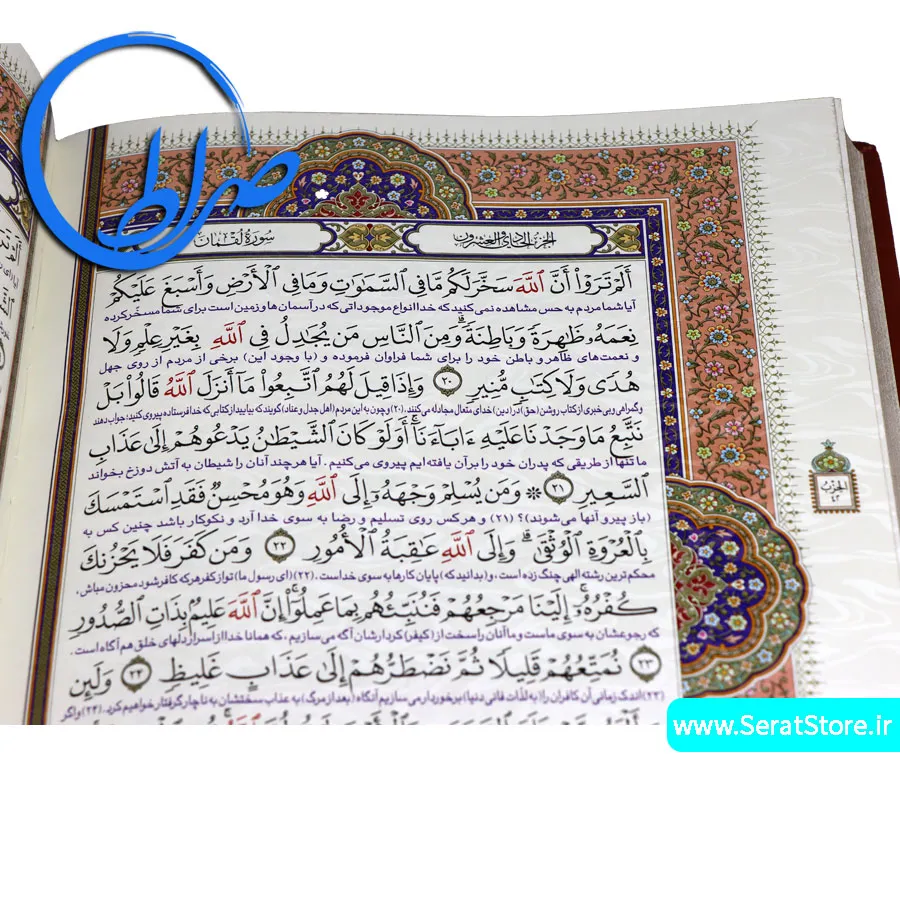 صراط
سورة لقمان
الجزء الحادي و العشرون
أَلَمْ تَرَوْا۟ أَنَّ ٱللَّهَ سَخَّرَ لَكُم مَّا فِي ٱلسَّمَٰوَٰتِ وَمَا فِي ٱلْأَرْضِ وَأَسْبَغَ عَلَيْكُمْ
آیا شما مردم به حس مشاهده نمی کنید که خدا انواع موجوداتی که در آسمان ها و زمین است برای شما مسخّر کرده
نِعَمَهُۥ ظَٰهِرَةً وَبَاطِنَةً ۗ وَمِنَ ٱلنَّاسِ مَن يُجَٰدِلُ فِي ٱللَّهِ بِغَيْرِ عِلْمٍ وَلَا
و نعمت های ظاهر و باطن خود را برای شما فراوان فرموده و (با وجود این) برخی از مردم از روی جهل
هُدًى وَلَا كِتَٰبٍ مُّنِيرٍ ٢٠ وَإِذَا قِيلَ لَهُمُ ٱتَّبِعُوا۟ مَآ أَنزَلَ ٱللَّهُ قَالُوا۟ بَلْ
و گمراهی و بی خبری از کتاب روشن (حق) در (دین) خدای متعال مجادله می کنند. (۲۰) و چون به این مردم (اهل جدل و عناد) گویند که بیایید از کتابی که خدا فرستاده پیروی کنید؛ جواب دهند
نَتَّبِعُ مَا وَجَدْنَا عَلَيْهِ ءَابَآءَنَآ ۚ أَوَلَوْ كَانَ ٱلشَّيْطَٰنُ يَدْعُوهُمْ إِلَىٰ عَذَابِ
ما تنها از طریقی که پدران خود را بر آن یافته ایم پیروی می کنیم. آیا هر چند آنان را شیطان به آتش دوزخ بخواند
ٱلسَّعِيرِ ٢١ ۞ وَمَن يُسْلِمْ وَجْهَهُۥٓ إِلَى ٱللَّهِ وَهُوَ مُحْسِنٌ فَقَدِ ٱسْتَمْسَكَ
(باز پیرو آنها می شوند)؟ (۲۱) و هر کس روی تسلیم و رضا به سوی خدا آرد و نکوکار باشد چنین کس به
بِٱلْعُرْوَةِ ٱلْوُثْقَىٰ ۗ وَإِلَى ٱللَّهِ عَٰقِبَةُ ٱلْأُمُورِ ٢٢ وَمَن كَفَرَ فَلَا يَحْزُنكَ
محکم ترین رشته الهی چنگ زده است، و (بدانید که) پایان کارها به سوی خداست. (۲۲) (ای رسول ما) تو از کفر هر که کافر شود محزون مباش،
كُفْرُهُۥٓ ۚ إِلَيْنَا مَرْجِعُهُمْ فَنُنَبِّئُهُم بِمَا عَمِلُوٓا۟ ۚ إِنَّ ٱللَّهَ عَلِيمٌۢ بِذَاتِ ٱلصُّدُورِ
که رجوعشان به سوی ماست و ما آنان را سخت از (کیفر) کردارشان آگه می سازیم، که همانا خدا از اسرار دلهای خلق هم آگاه است.
٢٣ نُمَتِّعُهُمْ قَلِيلًا ثُمَّ نَضْطَرُّهُمْ إِلَىٰ عَذَابٍ غَلِيظٍ ٢٤ وَلَئِن
(۲۳) اندک زمانی آن کافران را به لذات فانی دنیا) برخوردار می سازیم آنگاه (بعد از مرگ) به عذاب سختشان به ناچار گرفتار خواهیم کرد. (۲۴) و اگر
الحزب
٤٢
www.SeratStore.ir